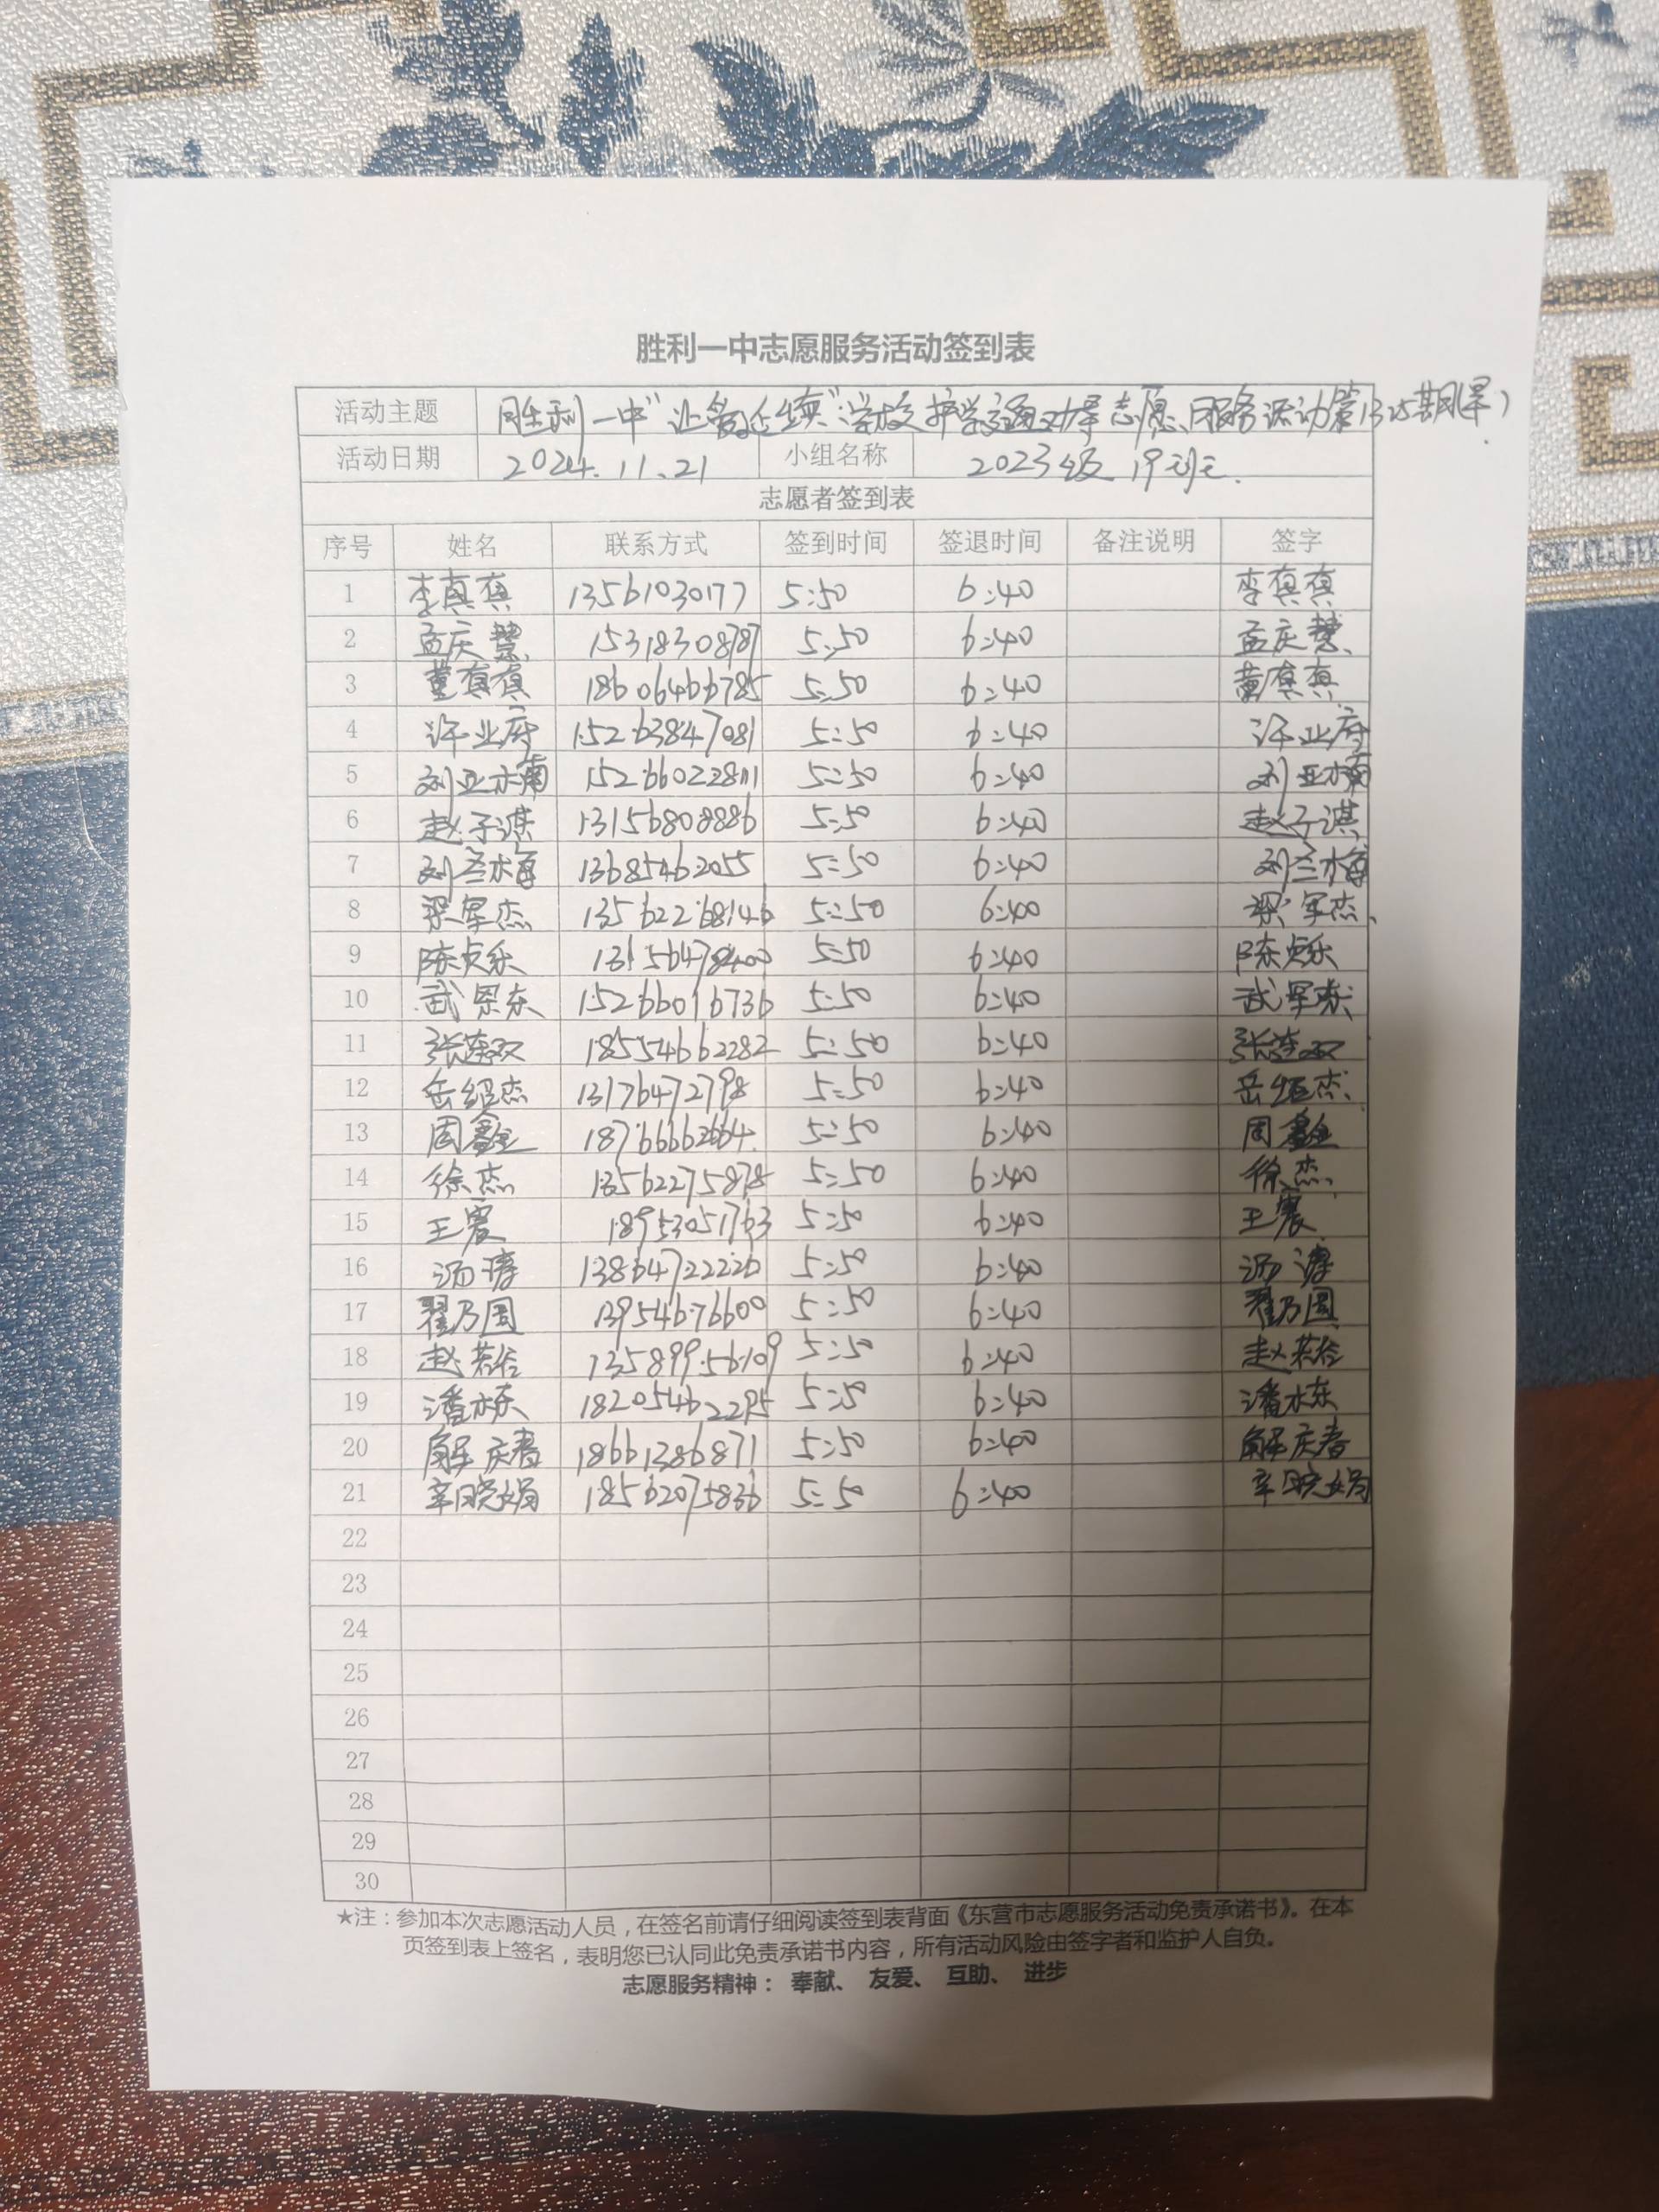 胜利一中志愿服务活动签到表
活动主题 胜利一中"让爱延续"学校护学交通疏导志愿服务活动第1325期(早)
活动日期 2024.11.21 小组名称 2023级19班
志愿者签到表
序号 姓名 联系方式 签到时间 签退时间 备注说明 签字
1 李真真 13561030177 5:50 6:40 李真真
2 孟庆慧 15318308787 5:50 6:40 孟庆慧
3 董真真 18606466785 5:50 6:40 董真真
4 许业府 15263847081 5:50 6:40 许业府
5 刘亚楠 15266022811 5:50 6:40 刘亚楠
6 赵子淇 13156808886 5:50 6:40 赵子淇
7 刘兰梅 13685462055 5:50 6:40 刘兰梅
8 梁军杰 13562268146 5:50 6:40 梁军杰
9 陈贞乐 5:50 6:40 陈贞乐
10 武军东 15266016736 5:50 6:40 武军东
11 张连双 18554662282 5:50 6:40 张连双
12 岳绍杰 13176472798 5:50 6:40 岳绍杰
13 周鑫 18766662664 5:50 6:40 周鑫
14 徐杰 13562275878 5:50 6:40 徐杰
15 王震 18953051763 5:50 6:40 王震
16 汤涛 13864722226 5:50 6:40 汤涛
17 翟乃国 13954676600 5:50 6:40 翟乃国
18 赵若伶 13589956109 5:50 6:40 赵若伶
19 潘栋 18205462295 5:50 6:40 潘栋
20 解庆春 18661386871 5:50 6:40 解庆春
21 辛晓娟 18562075836 5:50 6:40 辛晓娟
22
23
24
25
26
27
28
29
30
★注：参加本次志愿活动人员，在签名前请仔细阅读签到表背面《东营市志愿服务活动免责承诺书》。在本
页签到表上签名，表明您已认同此免责承诺书内容，所有活动风险由签字者和监护人自负。
志愿服务精神： 奉献、 友爱、 互助、 进步